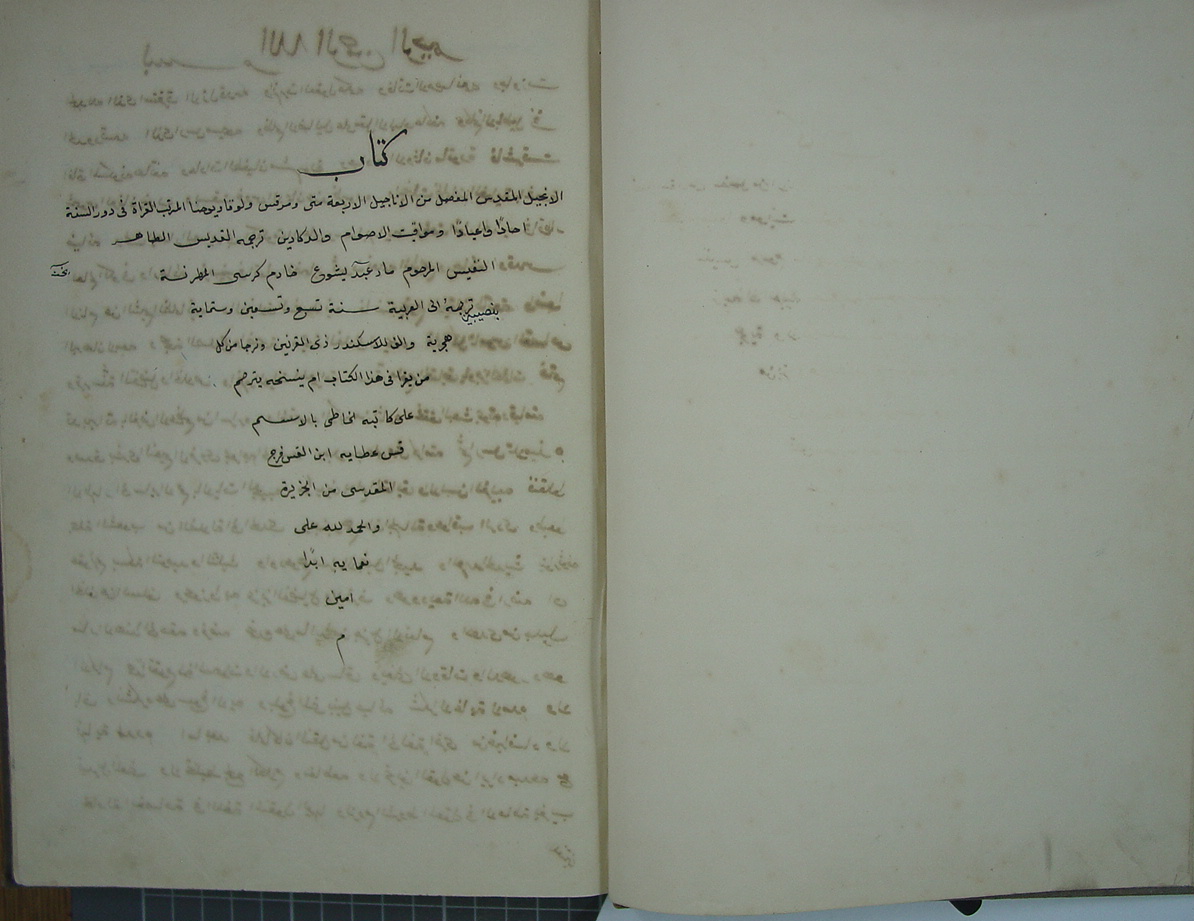 كتاب
الانجيل المقدس المفصل من الاناجيل الاربعة متى ومرقس ولوقا ويوحنا المرتب القراة فى دور السنة
احادًا واعيادًا ومواقيت الاصوام والدكارين ترجمه القديس الطاهر
النفيس المرحوم مار عبد يشوع خادم كرسى المطرنة
بنصيبين ترجمهُ الى العربية سنة تسع وتسعين وستماية
هجرية والف للاسكندر ذى القرنين ونرجا من كل
من يقرا فى هذا الكتاب ام ينسخه يترحم
على كاتبه الخاطى بالاسم
قس عطايه ابن القس فرج
المقدسى من الجزيرة
والحمد لله على
نعمايه ابدًا
امين
م